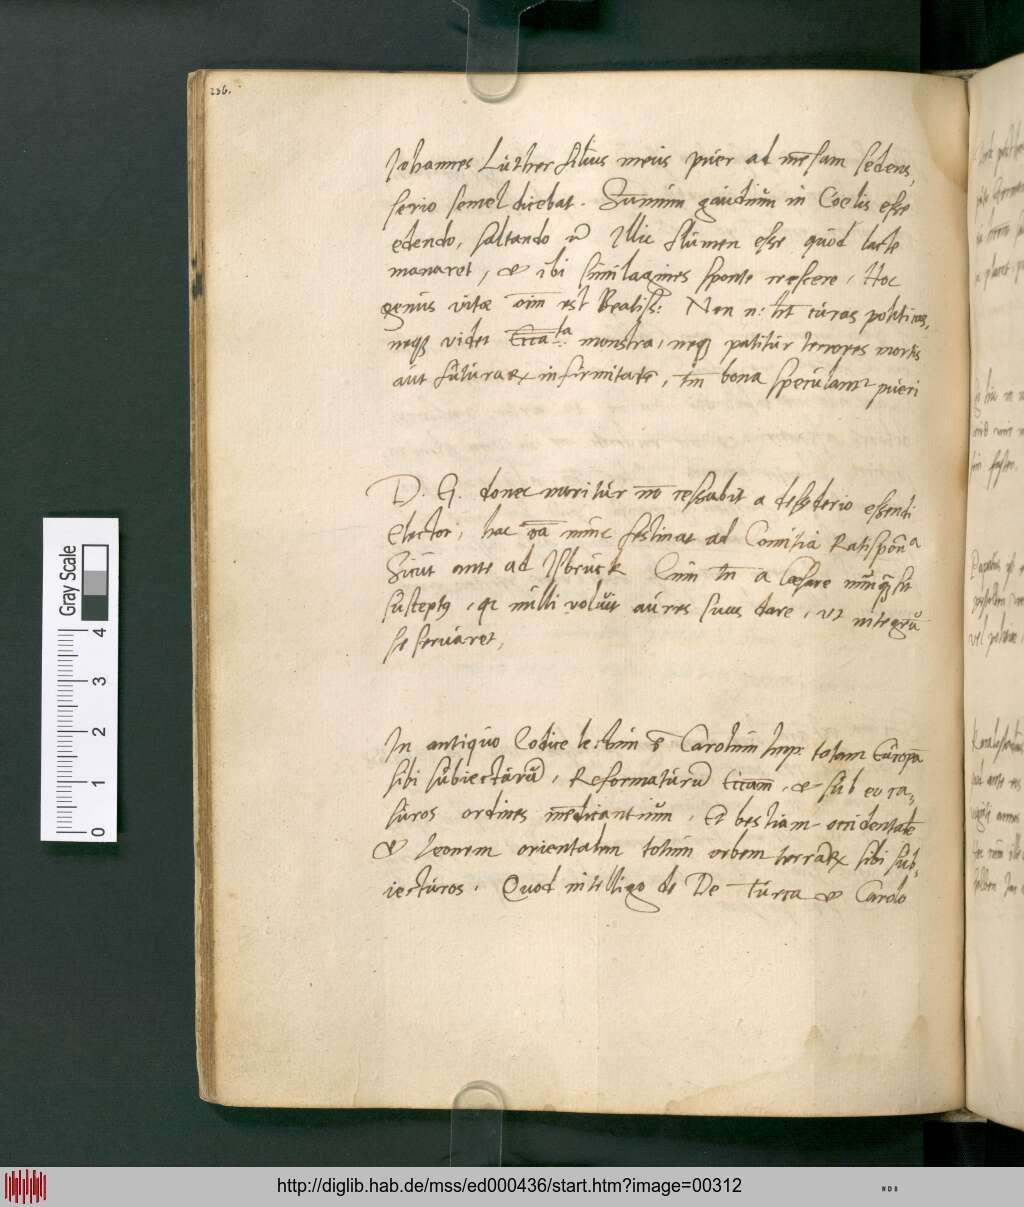 256.
Johannes Lüther filius meüs püer ad mēsam sedens,
serio semel dicebat. Sum̄um gaüdiüm in Coelis esse
edendo, saltando &c Illic flümen esse qüod lacte
manaret, & ibi similagines sponte crescere, Hoc
genüs vitæ oīm est Beatiss: Non n: ht cüras politicas,
neqȝ videt Ecca ta monstra, neqȝ patitür terrores mortis
aüt fütürarꝝ infirmitatē, tm̄ bona specülantr püeri
D. G. donec moritür nō cessabit a desyderio essendi
Elector, hac cā nünc festinat ad Comitia Ratispōna
Sicüt ante ad Isbrück Cüm tn̄ a Cæsare nünqȝ sit
süsceptꝰ, qr nülli volüit aüres süas dare, vt integrū
se servaret,
In antiqüo Codice lectüm ē Carolüm Imp: totam Eüropā
sibi sübiectürū, Reformatürū Eccam, & süb eo ca-
süros ordines mēdicantiüm, Et bestiam occidentalē
& leonem orientalem totüm orbem terrarꝝ sibi süb-
iectüros. Quod intelligo de De Türca & Carolo
http://diglib.hab.de/mss/ed000436/start.htm?image=00312
Gray Scale
4
3
2
1
0